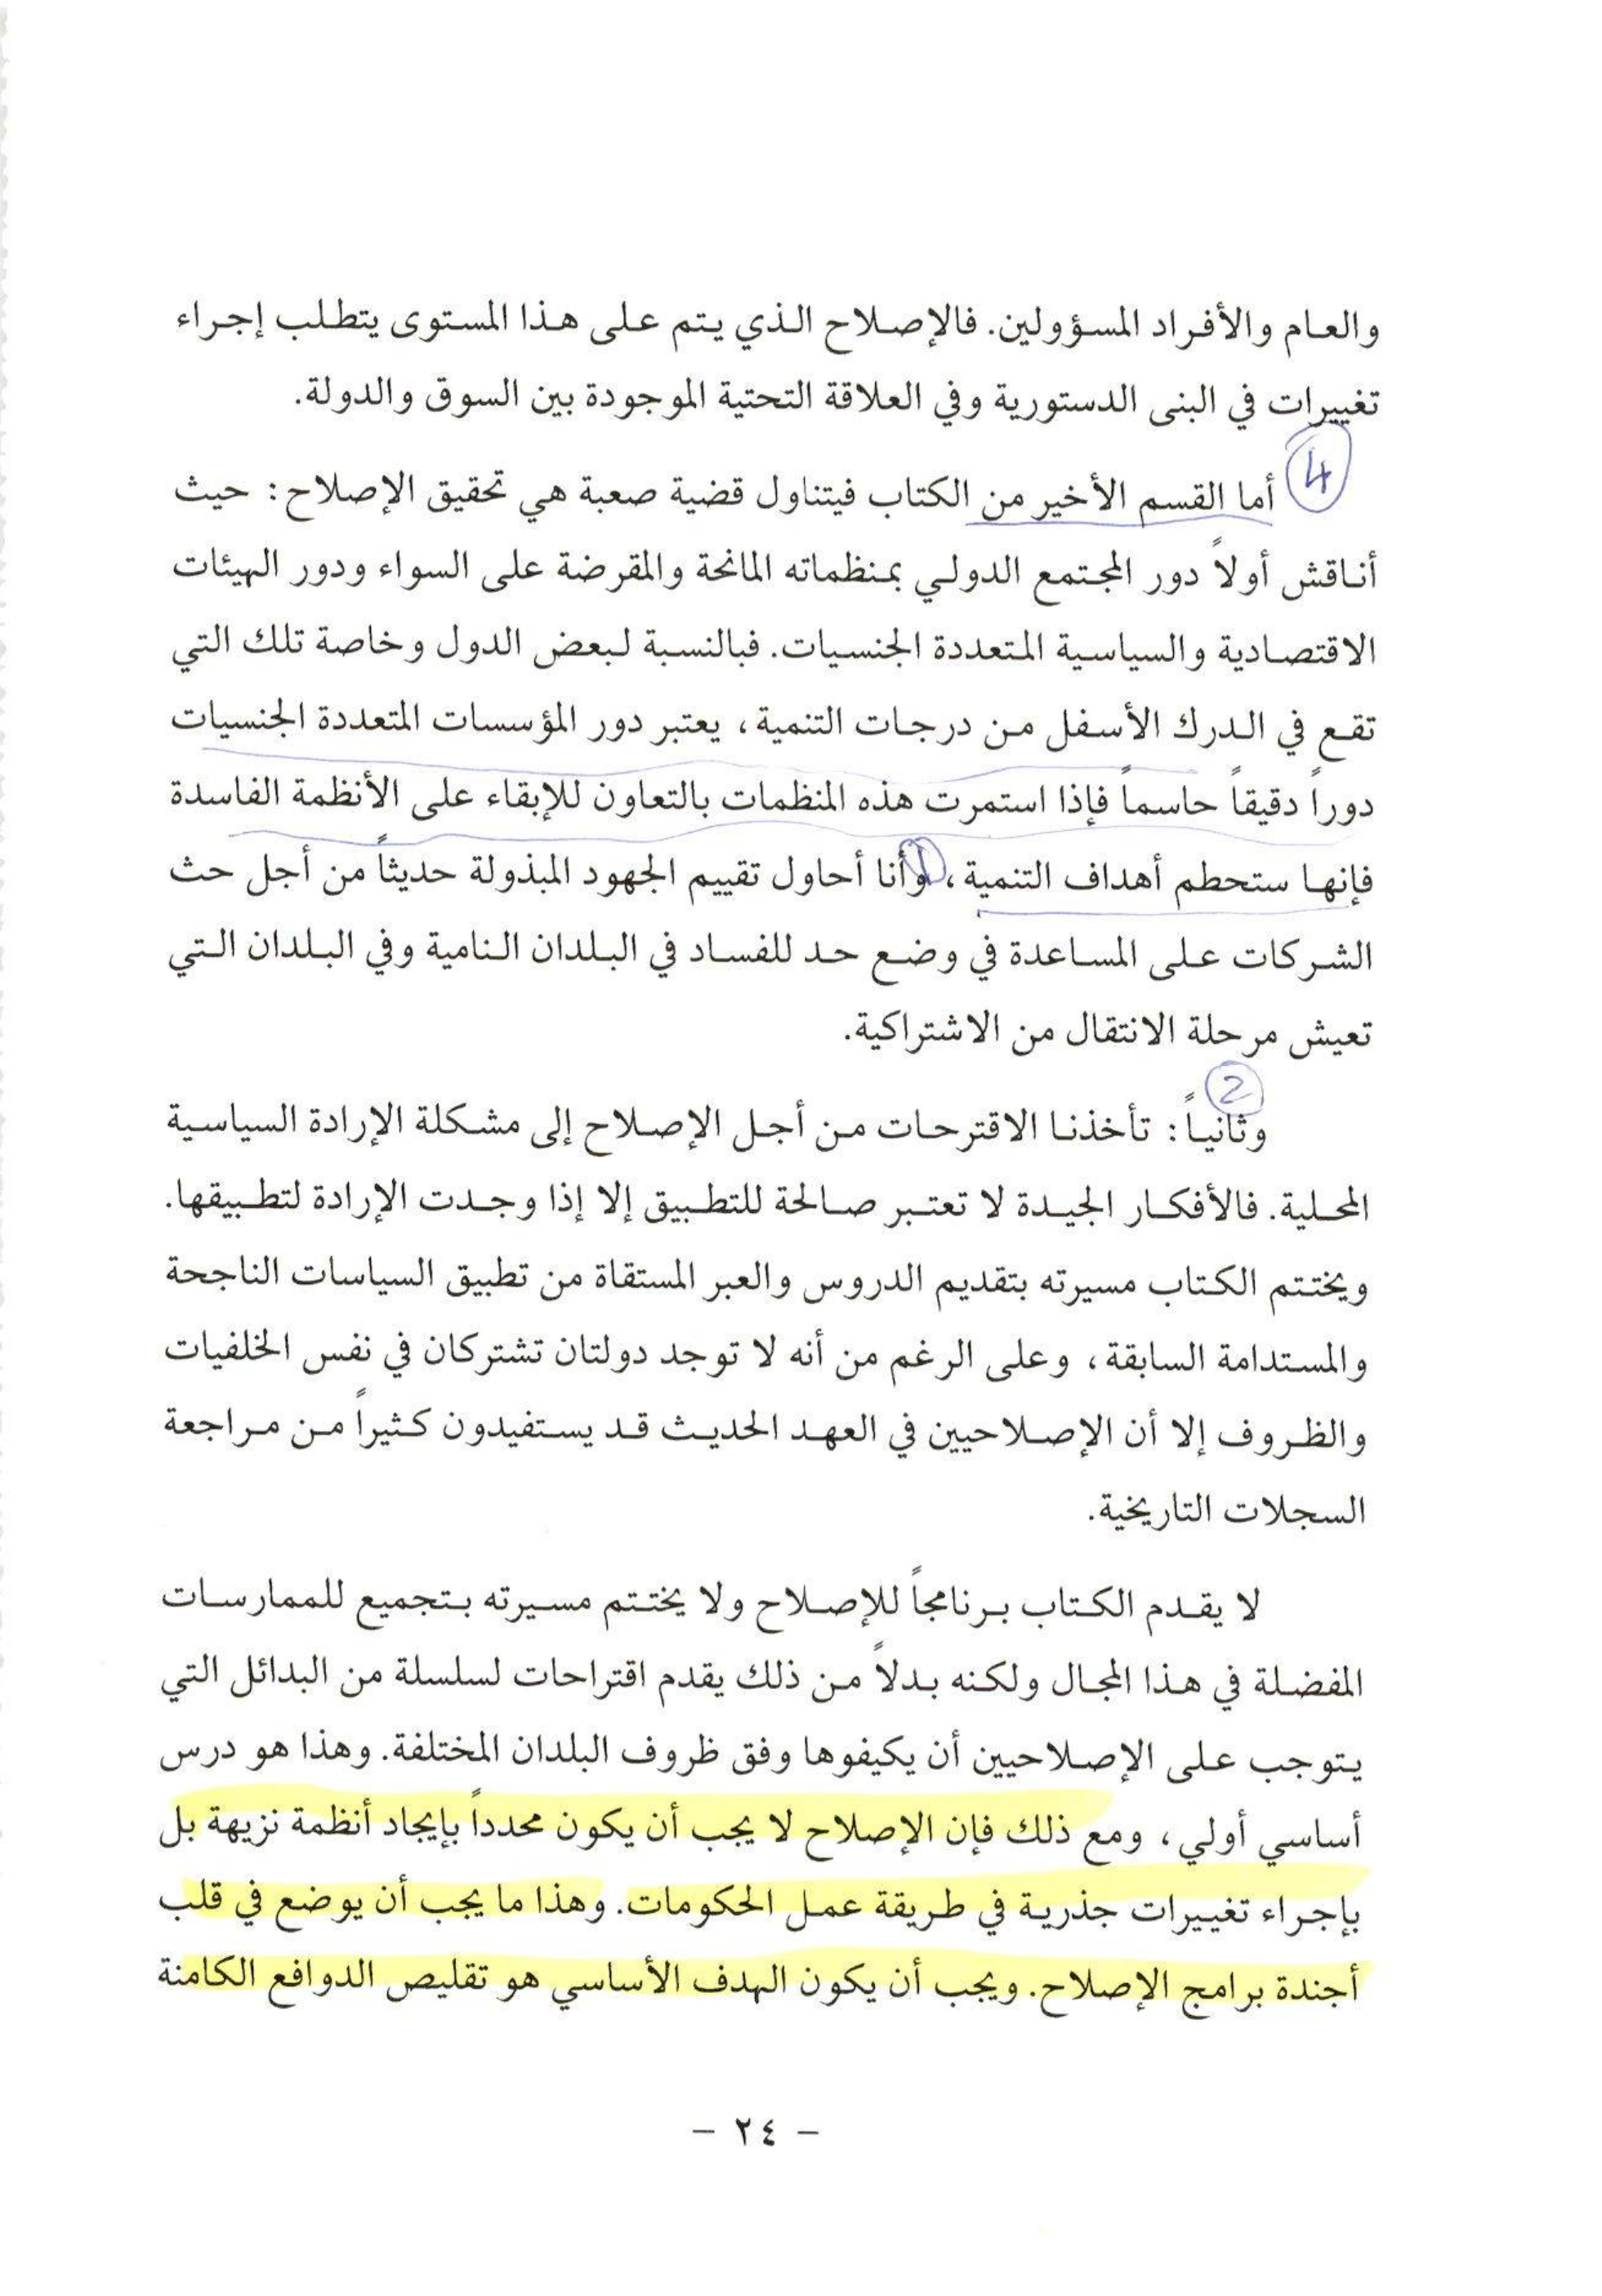 والعام والأفراد المسؤولين. فالإصلاح الذي يتم على هذا المستوى يتطلب إجراء
تغييرات في البنى الدستورية وفي العلاقة التحتية الموجودة بين السوق والدولة.
4
أما القسم الأخير من الكتاب فيتناول قضية صعبة هي تحقيق الإصلاح: حيث
أناقش أولاً دور المجتمع الدولي بمنظماته المانحة والمقرضة على السواء ودور الهيئات
الاقتصادية والسياسية المتعددة الجنسيات. فبالنسبة لبعض الدول وخاصة تلك التي
تقع في الدرك الأسفل من درجات التنمية، يعتبر دور المؤسسات المتعددة الجنسيات
دوراً دقيقاً حاسماً فإذا استمرت هذه المنظمات بالتعاون للإبقاء على الأنظمة الفاسدة
فإنها ستحطم أهداف التنمية، وأنا أحاول تقييم الجهود المبذولة حديثاً من أجل حث
الشركات على المساعدة في وضع حد للفساد في البلدان النامية وفي البلدان التي
تعيش مرحلة الانتقال من الاشتراكية.
2
وثانياً: تأخذنا الاقترحات من أجل الإصلاح إلى مشكلة الإرادة السياسية
المحلية. فالأفكار الجيدة لا تعتبر صالحة للتطبيق إلا إذا وجدت الإرادة لتطبيقها.
ويختتم الكتاب مسيرته بتقديم الدروس والعبر المستقاة من تطبيق السياسات الناجحة
والمستدامة السابقة، وعلى الرغم من أنه لا توجد دولتان تشتركان في نفس الخلفيات
والظروف إلا أن الإصلاحيين في العهد الحديث قد يستفيدون كثيراً من مراجعة
السجلات التاريخية.
لا يقدم الكتاب برنامجاً للإصلاح ولا يختتم مسيرته بتجميع للممارسات
المفضلة في هذا المجال ولكنه بدلاً من ذلك يقدم اقتراحات لسلسلة من البدائل التي
يتوجب على الإصلاحيين أن يكيفوها وفق ظروف البلدان المختلفة. وهذا هو درس
أساسي أولي، ومع ذلك فإن الإصلاح لا يجب أن يكون محدداً بإيجاد أنظمة نزيهة بل
بإجراء تغييرات جذرية في طريقة عمل الحكومات. وهذا ما يجب أن يوضع في قلب
أجندة برامج الإصلاح. ويجب أن يكون الهدف الأساسي هو تقليص الدوافع الكامنة
- ٢٤ -